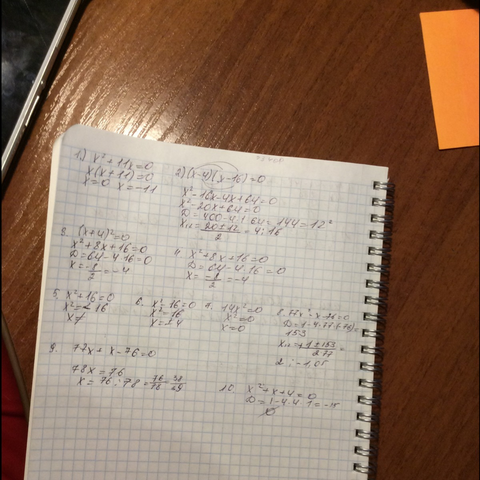 1) x² + 11x = 0
x(x + 11) = 0
x = 0 x = -11
2) (x-4)(x-16) = 0
x² - 16x - 4x + 64 = 0
x² - 20x + 64 = 0
D = 400 - 4·1·64 = 144 = 12²
x₁,₂ = (20 ± 12)/2 = 4; 16
3. (x+4)² = 0
x² + 8x + 16 = 0
D = 64 - 4·16 = 0
x = -8/2 = -4
4. x² + 8x + 16 = 0
D = 64 - 4·16 = 0
x = -8/2 = -4
5. x² + 16 = 0
x² = -16
6. x² - 16 = 0
x² = 16
x = ±4
7. 14x² = 0
x² = 0
x = 0
8. 77x² - x - 76 = 0
153
x₁,₂ = (1 ± 153)/277 =
9. 77x + x - 76 = 0
78x = 76
x = 76 : 78 = 76/78 =
10. x² + x + 4 = 0
D = 1 - 4·4·1 = -15